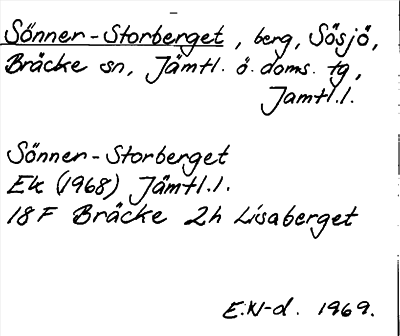 Sönner-Storberget, berg, Sösjö,
Bräcke sn, Jämtl. ö. doms. tg,
Jämtl.l.
Sönner-Storberget
Ek (1968) Jämtl.l.
18F Bräcke 2h Lisaberget
E.W-d. 1969.